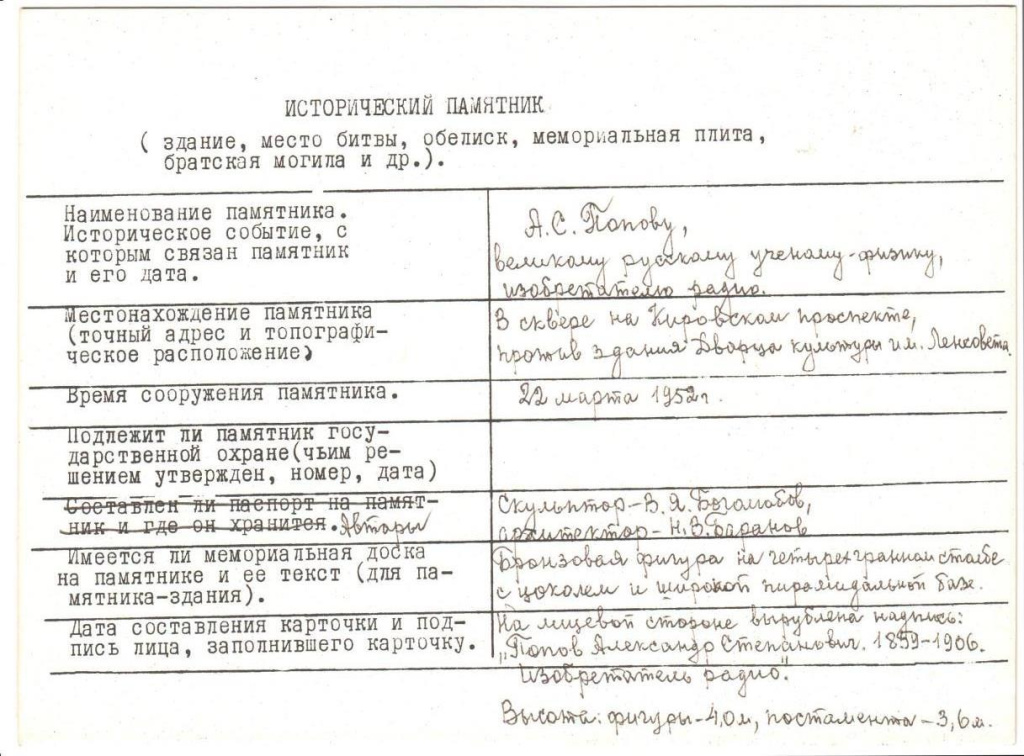 ИСТОРИЧЕСКИЙ ПАМЯТНИК
( здание, место битвы, обелиск, мемориальная плита,
братская могила и др.).
Наименование памятника.
Историческое событие, с
которым связан памятник
и его дата.
А.С. Попову,
великому русскому ученому-физику,
изобретателю радио.
Местонахождение памятника
(точный адрес и топографи-
ческое расположение)
В сквере на Кировском проспекте,
против здания Дворца культуры им. Ленсовета.
Время сооружения памятника.
22 марта 1952г.
Подлежит ли памятник госу-
дарственной охране(чьим ре-
шением утвержден, номер, дата)
Составлен ли паспорт на памят-
ник и где он хранится. Авторы
Скульптор-В.Я.Боголюбов,
архитектор-Н.В.Баранов
Имеется ли мемориальная доска
на памятнике и ее текст (для па-
мятника-здания).
Бронзовая фигура на четырехгранном столбе
с цоколем и широкой пирамидальной базе.
Дата составления карточки и под-
пись лица, заполнившего карточку.
На лицевой стороне вырублена надпись:
„Попов Александр Степанович. 1859-1906.
Изобретатель радио".
Высота: фигуры-4,0м, постамента-3,6м.